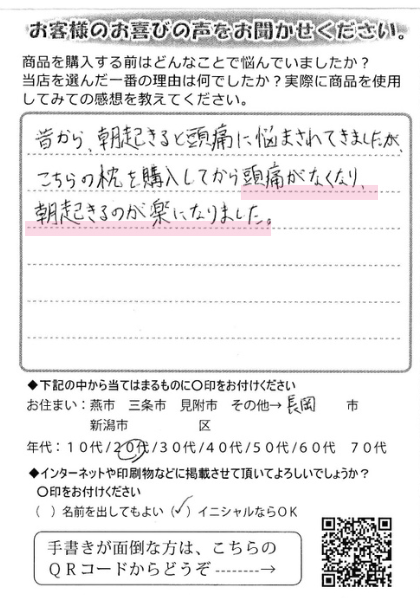 お客様のお喜びの声をお聞かせください。
商品を購入する前はどんなことで悩んでいましたか？
当店を選んだ一番の理由は何でしたか？実際に商品を使用
してみての感想を教えてください。
昔から、朝起きると頭痛に悩まされてきましたが、
こちらの枕を購入してから頭痛がなくなり、
朝起きるのが楽になりました。
◆下記の中から当てはまるものに〇印をお付けください
お住まい：燕市　三条市　見附市　その他→ 長岡　市
新潟市　　　区
年代：１０代/２０代/３０代/４０代/５０代/６０代　７０代
◆インターネットや印刷物などに掲載させて頂いてよろしいでしょうか？
〇印をお付けください
（　）名前を出してもよい（✓）イニシャルならＯＫ
手書きが面倒な方は、こちらの
ＱＲコードからどうぞ --------→